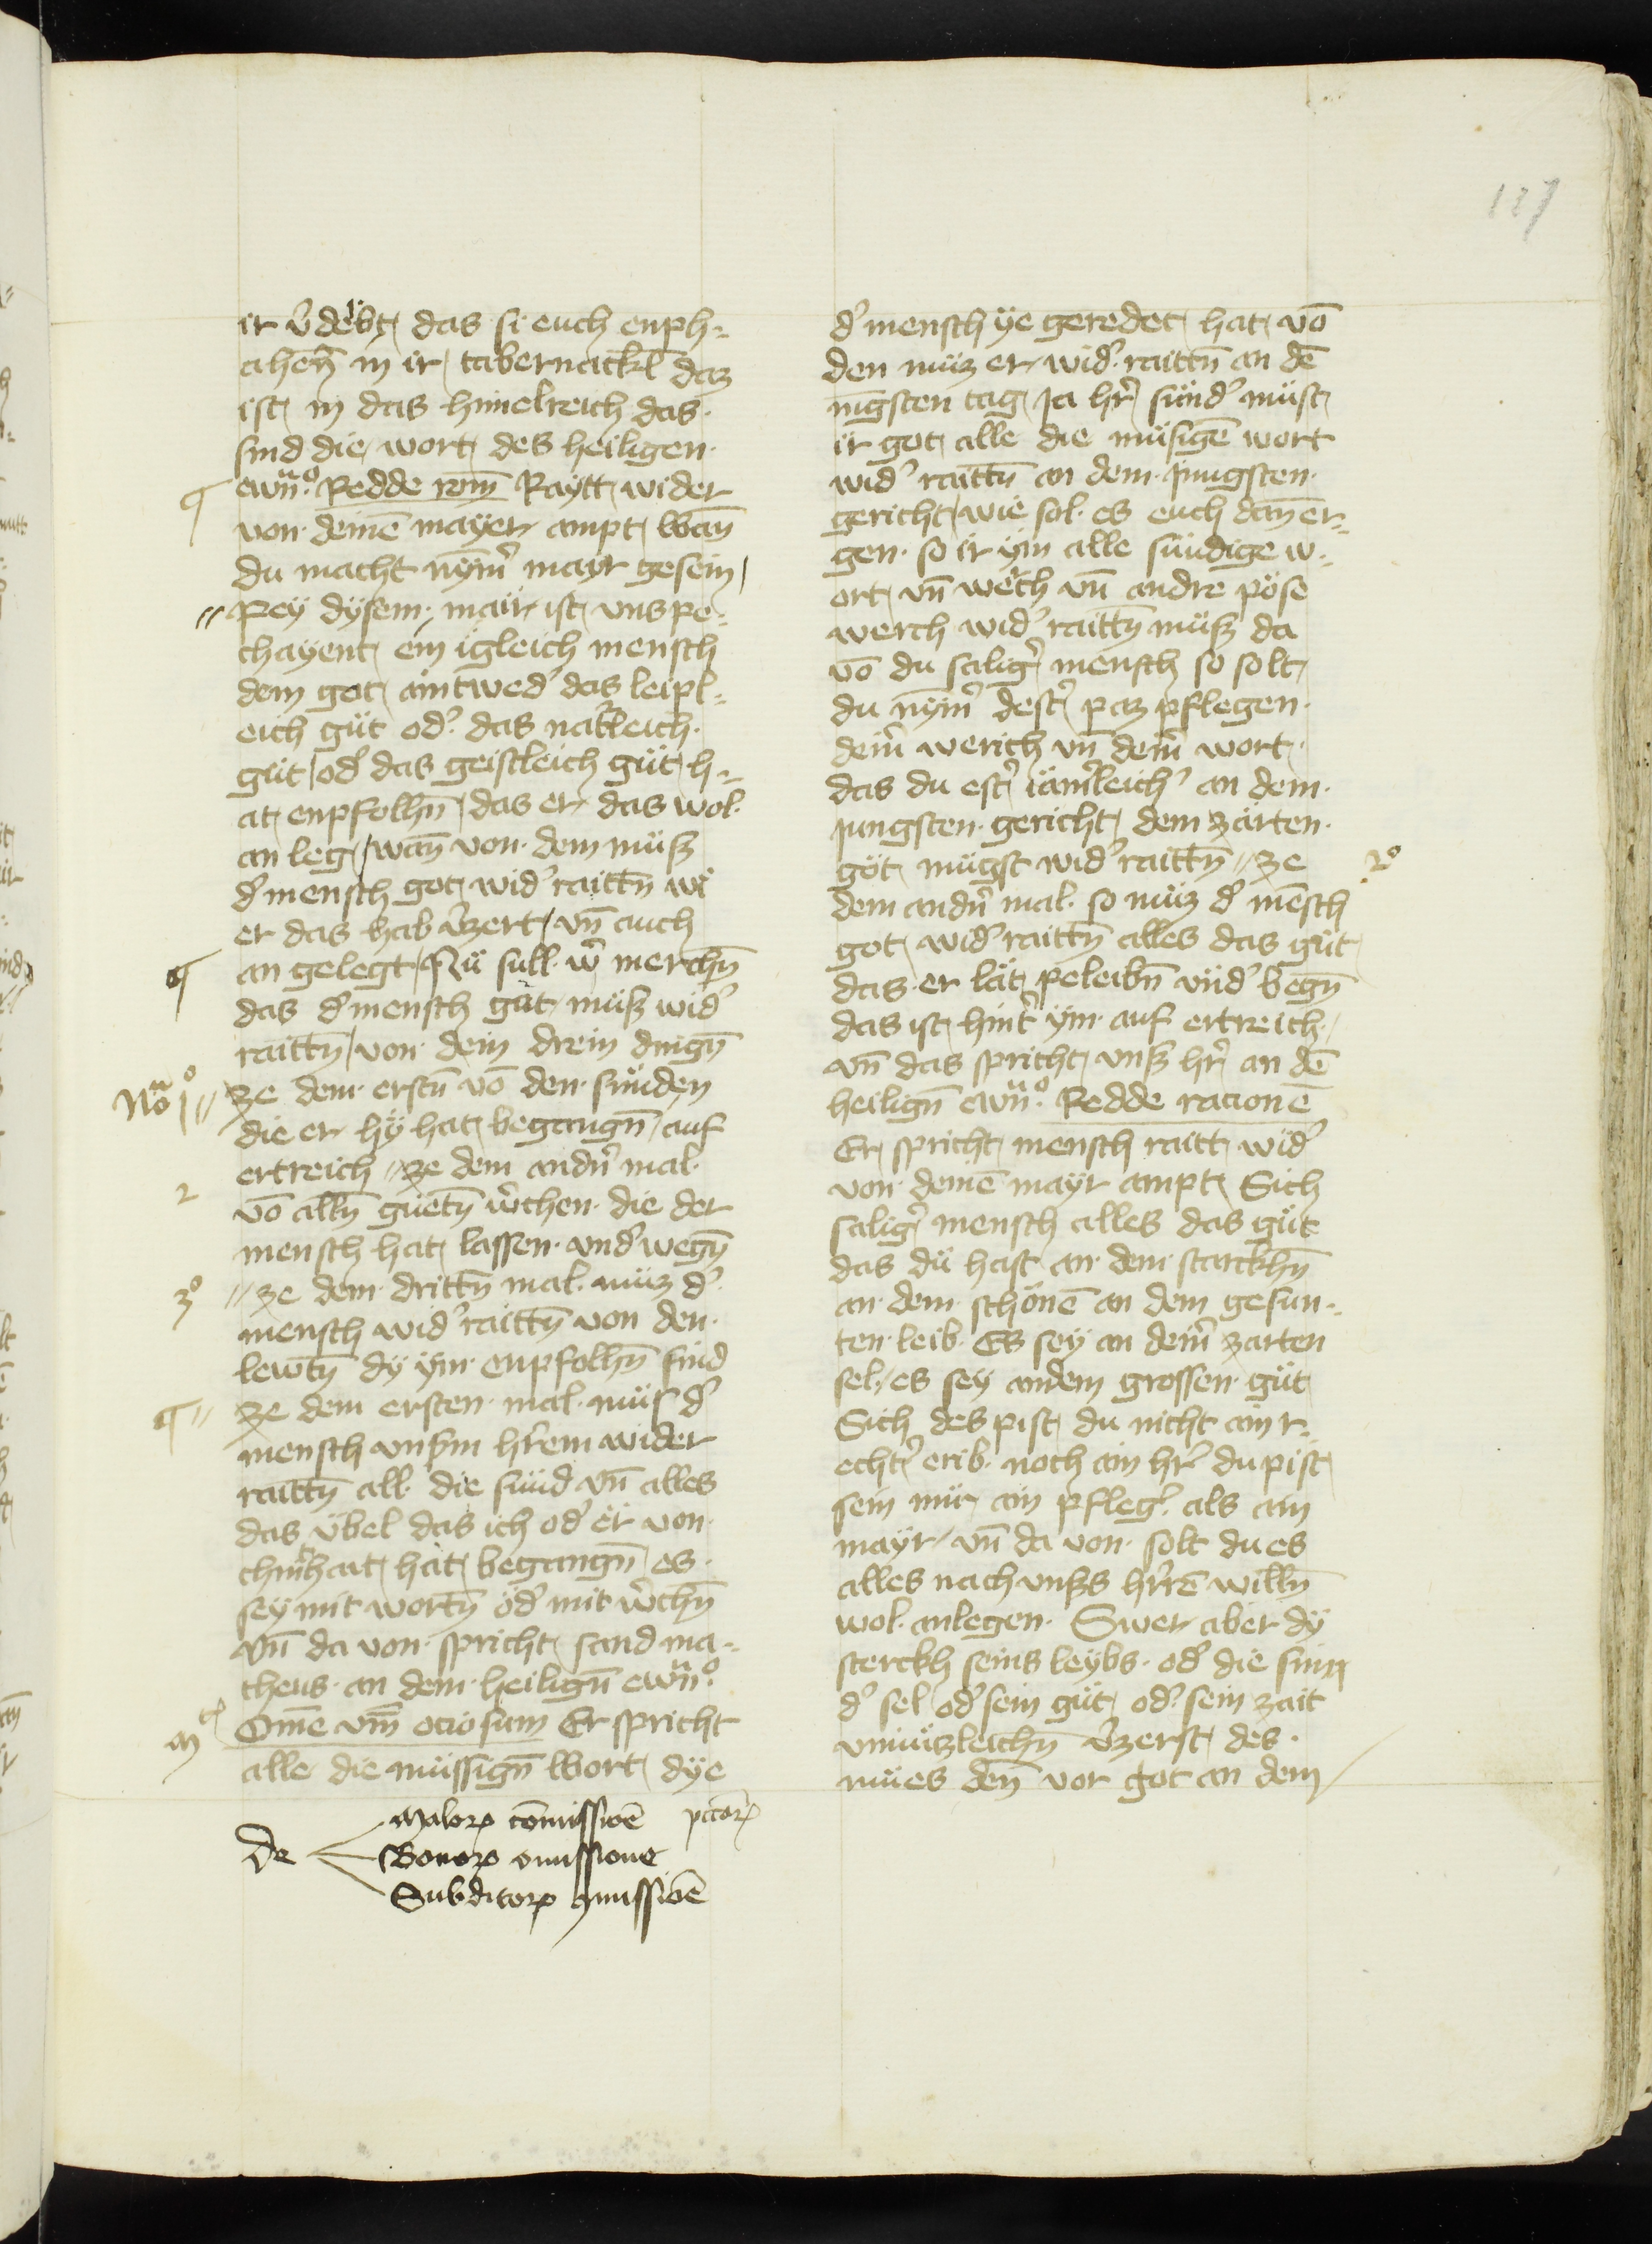 127
ir v̄debt, das si euch enph-
ahen̄ in ir, tabernackl̄ daz
ist, in das himelreich das
sind die, wort, des heiligen
ewn̄o. Redde rom̄ Raytt, wider
von deinē mayer ampt, Wan̄
du macht nym̄er mayr gesein,
Pey dysem, mair, ist, vns pe-
chayent, ein igleich mensch
dem got, aintweder das leipl-
eich güt oder das natleich
güt, oder das geistleich güt, h-
at, enpfolhn̄, das er, das wol
an leg, wan̄ von dem müß
der mensch got, wider raittn̄ wi
er das hab v̄zert, vn̄ auch
an gelegt, Nü sull wir merchn̄
das der mensch gut, müß wider
raittn̄, von dein drein dingn̄
No 1 ze dem erstn̄ vō den sünden
die er hy hat, begangn̄, auf
ertreich ze dem andn̄ mal
2 vō alln̄ guetn̄ w̄chen die der
mensch hat, lassen vnder wegn̄
3o ze dem drittn̄ mal müz der
mensch wider raittn̄ von den
lewtn̄ dy ym enpfolhn̄ sind
ze dem ersten mal müs der
mensch vnsm hrem wider
raittn̄ all die sünd vn̄ alles
das übel das ich oder er von
chinthait, hat, begangn̄ es
sey mit wortn̄ oder mit w̄chn̄
Vn̄ da von spricht, sand ma-
theus an dem heilign̄ ewn̄o.
Om̄e vm̄ ociosum Er spricht
alle die müssign̄ Wort, dye
De
Malorum cōmissiōe pctōrum
Bonorum omissione
Subditorum cōmissiōe
der mensch ye geredet, hat, vō
den müz er, wider raittn̄ an dē
nigsten tag, Ja hr̄ sünder müst,
ir got, alle die müsigē wort
wider raittn̄ an dem Jungsten
gericht, wie sol es euch dan̄ er-
gen so ir ym alle sündige w-
ort, vn̄ werch vn̄ andre pöse
werch wider raittn̄ müß da
vō du saliger mensch so solt,
du nym̄er dester paz pflegen
deiner werich vn̄ deiner wort,
das du ester iämerleicher an dem
Jungsten gericht, dem zärten
got, mügst wider raittn̄ ze 2o
dem andn̄ mal so müz der mēsch
got, wider raittn̄ alles das güt
das er lät, peleibn̄ vnder wegn̄
das ist, hinter ym auf ertreich,
vn̄ das spricht, vnß hr̄ an dē
heilign̄ ewn̄o. Redde racionē
Er, spricht, mensch raitt, wider
von deinē mayr ampt, Sich
saliger mensch alles das güt
das dü hast an dem starckhn̄
an dem schönē an dem gesun-
ten leib Es sey an deiner zarten
sel, es sey andem grossen güt
Sich des pist, du nicht ain r-
echter erib noch ain hr̄ du pist,
sein nür, ain pfleger als ain
mayr, vn̄ da von solt du es
alles nach vnßs hrrē willn̄
wol anlegen Swer aber dy
sterckh seins leybs oder die sinn
der sel oder sein güt, oder sein zait
vnnützleichn̄ v̄zerst, des
mües den̄ vor got an dem